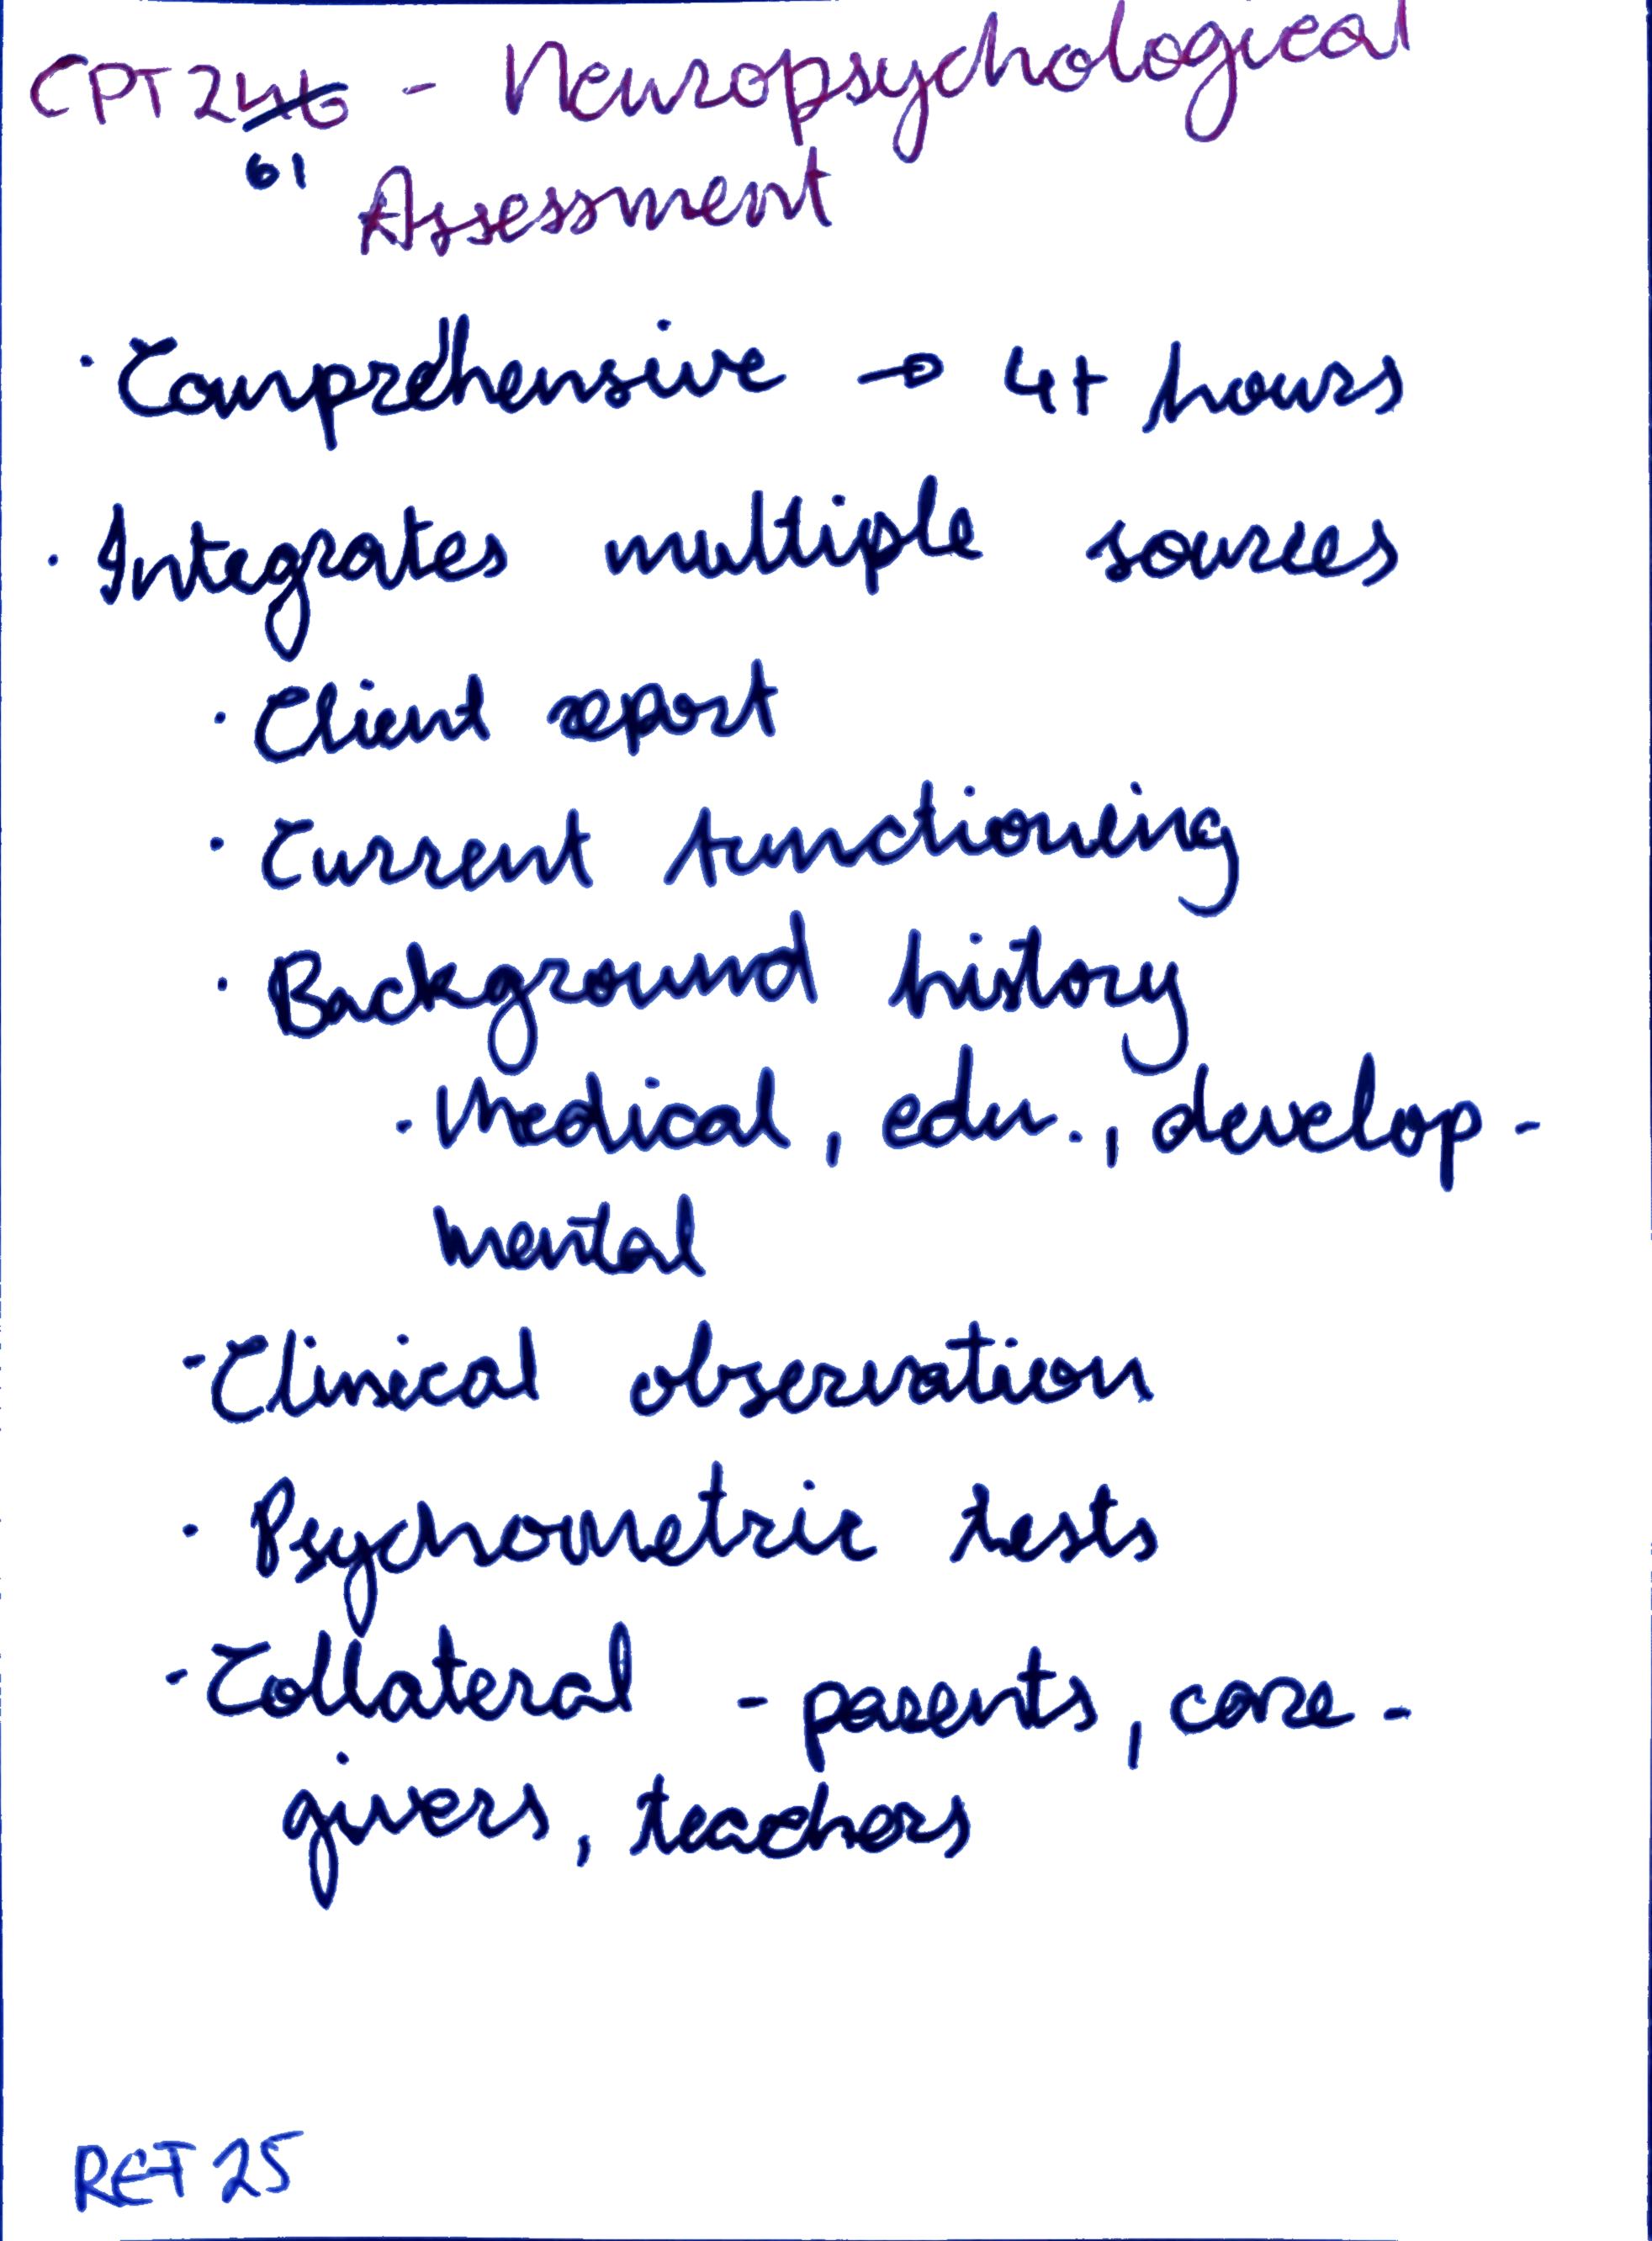 CPT 246 - Neuropsychological
61
Assessment
· Comprehensive → 4+ hours
· Integrates multiple sources
· Client report
· Current functioning
· Background history
· Medical, edu., develop-
mental
- Clinical observation
· Psychometric tests
- Collateral - parents, care-
givers, teachers
RET 25